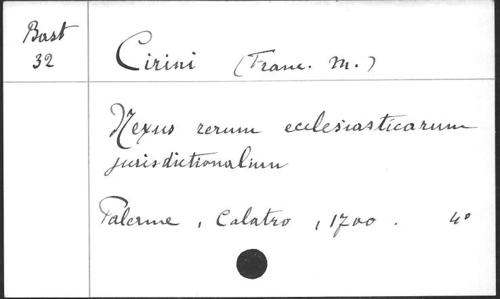 Bast
32
Cirini (Franc. M.)
Nexus rerum ecclesiasticarum
jurisdictionalium
Palerme, Calatro, 1700. 4°